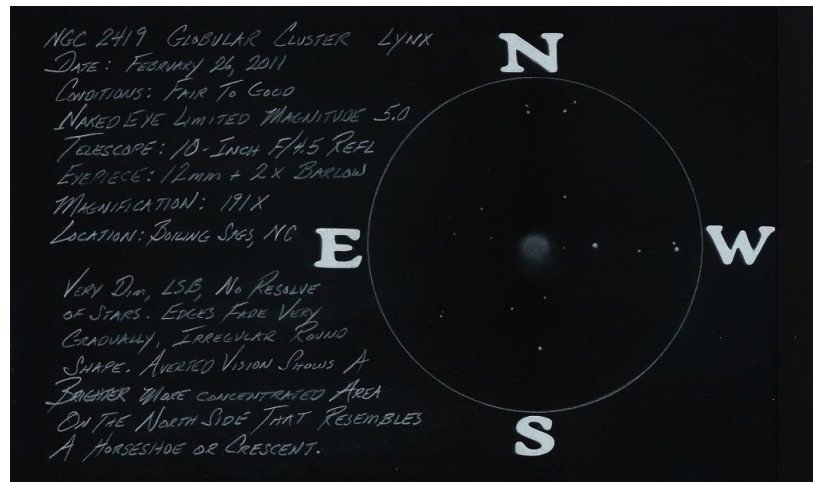 NGC 2419 GLOBULAR CLUSTER LYNX
DATE: FEBRUARY 26, 2011
CONDITIONS: FAIR TO GOOD
NAKED EYE LIMITED MAGNITUDE 5.0
TELESCOPE: 10-INCH F/4.5 REFL
EYEPIECE: 12mm + 2X BARLOW
MAGNIFICATION: 191X
LOCATION: BOILING SPGS, NC
VERY DIM, LSB, NO RESOLVE
OF STARS. EDGES FADE VERY
GRADUALLY, IRREGULAR ROUND
SHAPE. AVERTED VISION SHOWS A
BRIGHTER MORE CONCENTRATED AREA
ON THE NORTH SIDE THAT RESEMBLES
A HORSESHOE OR CRESCENT.
N
E
W
S